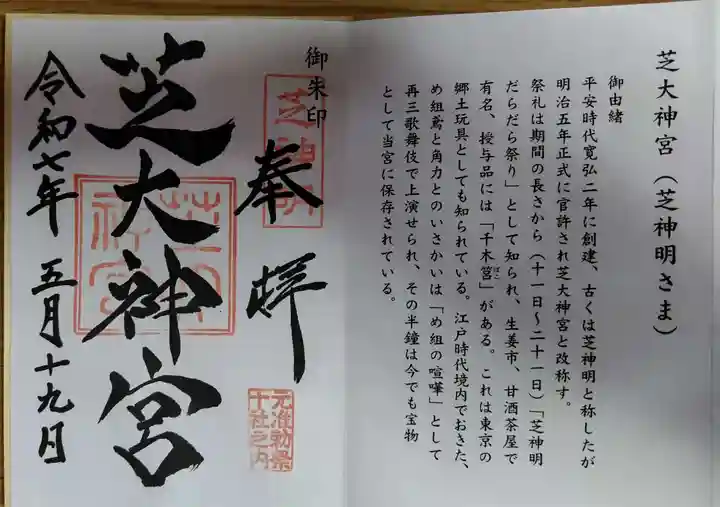 芝大神宮（芝神明さま）
御由緒
平安時代寛弘二年に創建、古くは芝神明と称したが
明治五年正式に官許され芝大神宮と改称す。
祭礼は期間の長さから（十一日〜二十一日）「芝神明
だらだら祭り」として知られ、生姜市、甘酒茶屋で
有名、授与品には「千木筥ばこ」がある。これは東京の
郷土玩具としても知られている。江戸時代境内でおきた、
め組鳶と角力とのいさかいは「め組の喧嘩」として
再三歌舞伎で上演せられ、その半鐘は今でも宝物
として当宮に保存されている。
御朱印
芝神明
奉拝
元准勅祭
十社之内
芝大神宮
令和七年五月十九日